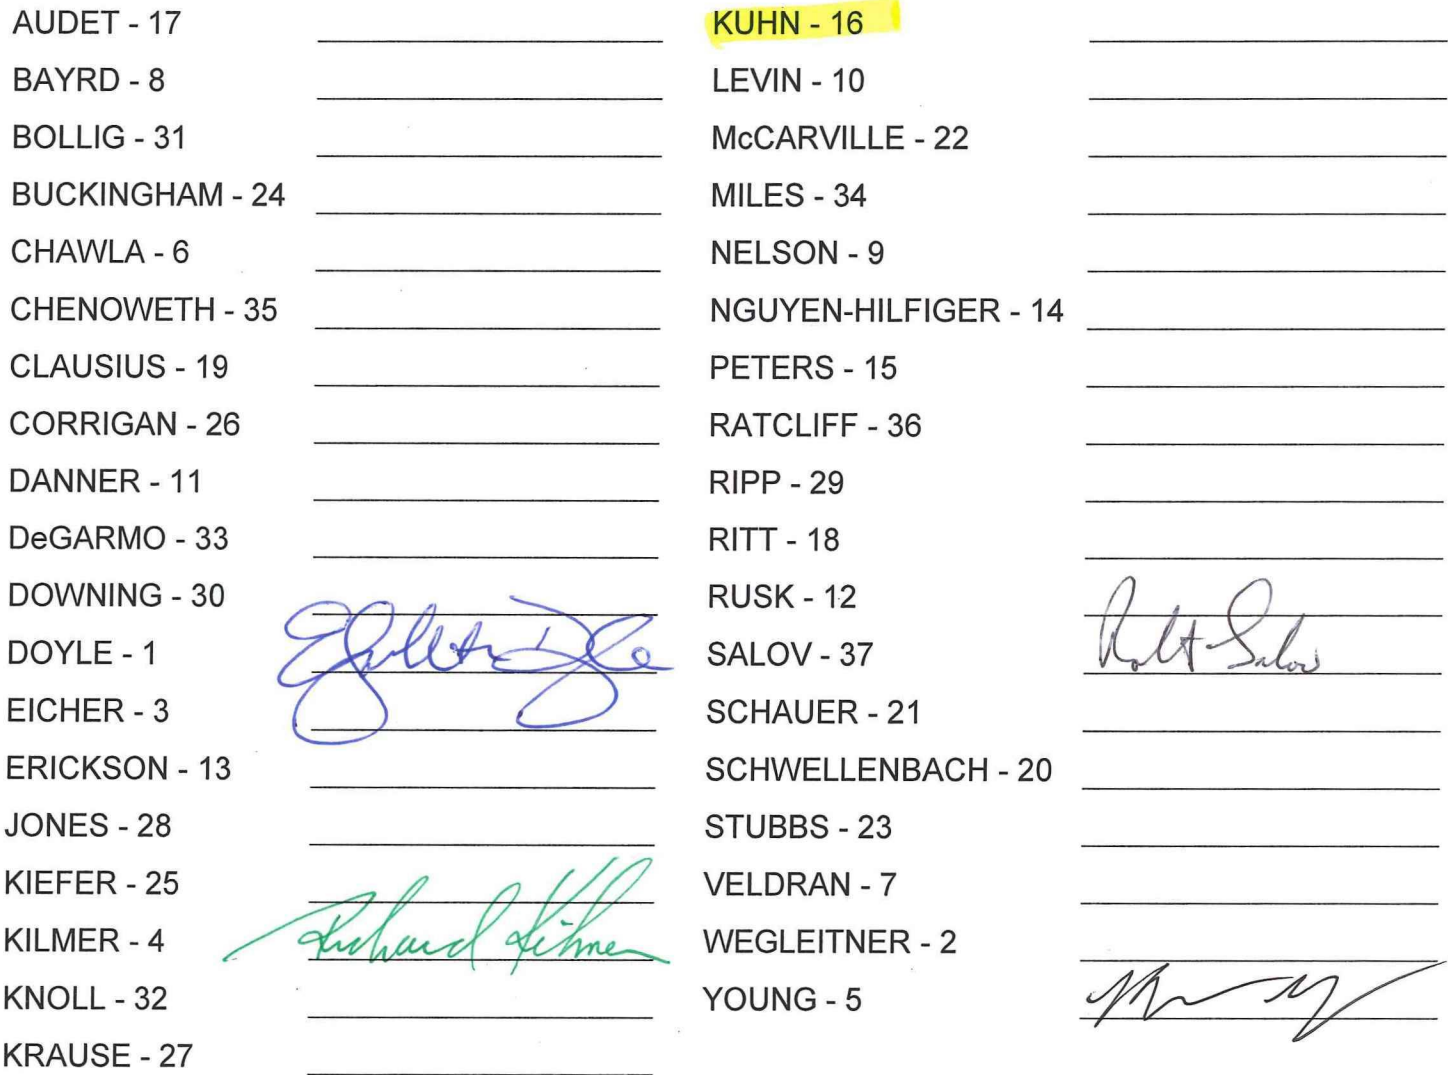 AUDET - 17
BAYRD - 8
BOLLIG - 31
BUCKINGHAM - 24
CHAWLA - 6
CHENOWETH - 35
CLAUSIUS - 19
CORRIGAN - 26
DANNER - 11
DeGARMO - 33
DOWNING - 30
DOYLE - 1
EICHER - 3
ERICKSON - 13
JONES - 28
KIEFER - 25
KILMER - 4 Richard Kilmer
KNOLL - 32
KRAUSE - 27
KUHN - 16
LEVIN - 10
McCARVILLE - 22
MILES - 34
NELSON - 9
NGUYEN-HILFIGER - 14
PETERS - 15
RATCLIFF - 36
RIPP - 29
RITT - 18
RUSK - 12
SALOV - 37 Salov
SCHAUER - 21
SCHWELLENBACH - 20
STUBBS - 23
VELDRAN - 7
WEGLEITNER - 2
YOUNG - 5